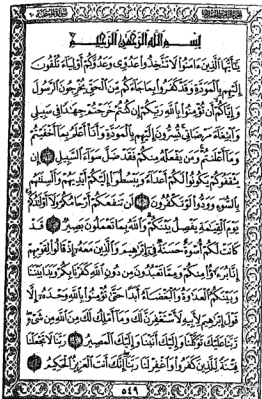 بِسْمِ ٱللَّهِ ٱلرَّحْمَٰنِ ٱلرَّحِيمِ
يَٰٓأَيُّهَا ٱلَّذِينَ ءَامَنُوا۟ لَا تَتَّخِذُوا۟ عَدُوِّى وَعَدُوَّكُمْ أَوْلِيَآءَ تُلْقُونَ
إِلَيْهِم بِٱلْمَوَدَّةِ وَقَدْ كَفَرُوا۟ بِمَا جَآءَكُم مِّنَ ٱلْحَقِّ يُخْرِجُونَ ٱلرَّسُولَ
وَإِيَّاكُمْ أَن تُؤْمِنُوا۟ بِٱللَّهِ رَبِّكُمْ إِن كُنتُمْ خَرَجْتُمْ جِهَٰدًا فِى سَبِيلِى
وَٱبْتِغَآءَ مَرْضَاتِى تُسِرُّونَ إِلَيْهِم بِٱلْمَوَدَّةِ وَأَنَا۠ أَعْلَمُ بِمَآ أَخْفَيْتُمْ
وَمَآ أَعْلَنتُمْ وَمَن يَفْعَلْهُ مِنكُمْ فَقَدْ ضَلَّ سَوَآءَ ٱلسَّبِيلِ ۝١ إِن
يَثْقَفُوكُمْ يَكُونُوا۟ لَكُمْ أَعْدَآءً وَيَبْسُطُوٓا۟ إِلَيْكُمْ أَيْدِيَهُمْ وَأَلْسِنَتَهُم
بِٱلسُّوٓءِ وَوَدُّوا۟ لَوْ تَكْفُرُونَ ۝٢ لَن تَنفَعَكُمْ أَرْحَامُكُمْ وَلَآ أَوْلَٰدُكُمْ
يَوْمَ ٱلْقِيَٰمَةِ يَفْصِلُ بَيْنَكُمْ وَٱللَّهُ بِمَا تَعْمَلُونَ بَصِيرٌ ۝٣ قَدْ
كَانَتْ لَكُمْ أُسْوَةٌ حَسَنَةٌ فِىٓ إِبْرَٰهِيمَ وَٱلَّذِينَ مَعَهُۥٓ إِذْ قَالُوا۟ لِقَوْمِهِمْ
إِنَّا بُرَءَٰٓؤُا۟ مِنكُمْ وَمِمَّا تَعْبُدُونَ مِن دُونِ ٱللَّهِ كَفَرْنَا بِكُمْ وَبَدَا بَيْنَنَا
وَبَيْنَكُمُ ٱلْعَدَٰوَةُ وَٱلْبَغْضَآءُ أَبَدًا حَتَّىٰ تُؤْمِنُوا۟ بِٱللَّهِ وَحْدَهُۥٓ إِلَّا
قَوْلَ إِبْرَٰهِيمَ لِأَبِيهِ لَأَسْتَغْفِرَنَّ لَكَ وَمَآ أَمْلِكُ لَكَ مِنَ ٱللَّهِ مِن شَىْءٍ
رَّبَّنَا عَلَيْكَ تَوَكَّلْنَا وَإِلَيْكَ أَنَبْنَا وَإِلَيْكَ ٱلْمَصِيرُ ۝٤ رَبَّنَا لَا تَجْعَلْنَا
فِتْنَةً لِّلَّذِينَ كَفَرُوا۟ وَٱغْفِرْ لَنَا رَبَّنَآ إِنَّكَ أَنتَ ٱلْعَزِيزُ ٱلْحَكِيمُ ۝٥
٥٤٩